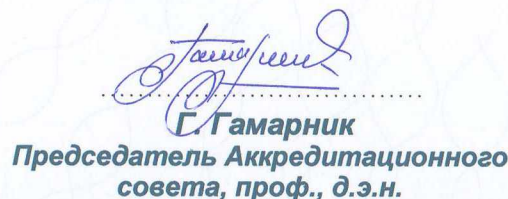 Гамарник
Г. Гамарник
Председатель Аккредитационного
совета, проф., д.э.н.